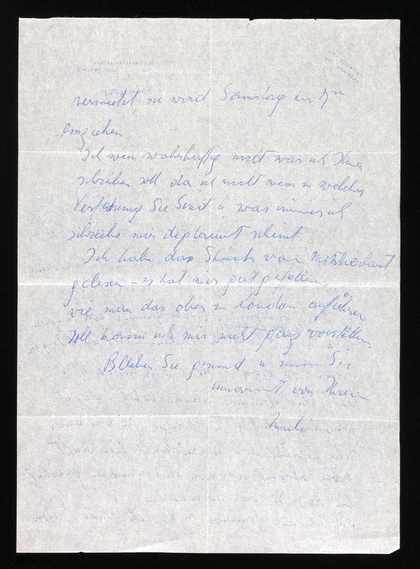 vermietet, sie wird Samstag in
einziehen
Ich weiss wahrhaftig nicht was ich Ihnen
schreiben soll da ich nicht weiss in welcher
Sie sind u was immer ich
schreibe mir deplaciert scheint.
Ich habe das Stück von
gelesen – es hat mir gut gefallen,
wie man das aber in London aufführen
soll kann ich mir nicht ganz vorstellen
Bleiben Sie gesund u seien Sie
umarmt von Ihrem